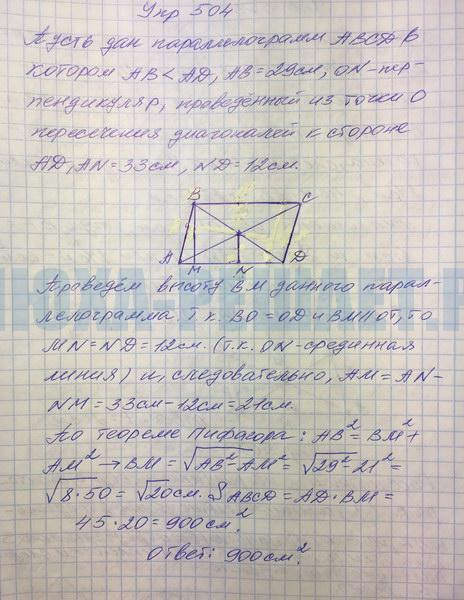 Упр 504
Пусть дан параллелограмм ABCD в
котором AB < AD, AB = 29см, ON - пер-
пендикуляр, проведённый из точки O
пересечения диагоналей к стороне
AD, AN = 33см, ND = 12см.
B C
A M N D
Проведём высоту BM данного парал-
лелограмма. т.к. BO = OD и BM || OT, то
MN = ND = 12см. (т.к. ON - срединная
линия) и, следовательно, AM = AN -
NM = 33см - 12см = 21см.
По теореме Пифагора: AB² = BM² +
AM² → BM = √AB² - AM² = √29² - 21² =
√8·50 = √20см. SABCD = AD · BM =
45 · 20 = 900см².
Ответ: 900см².